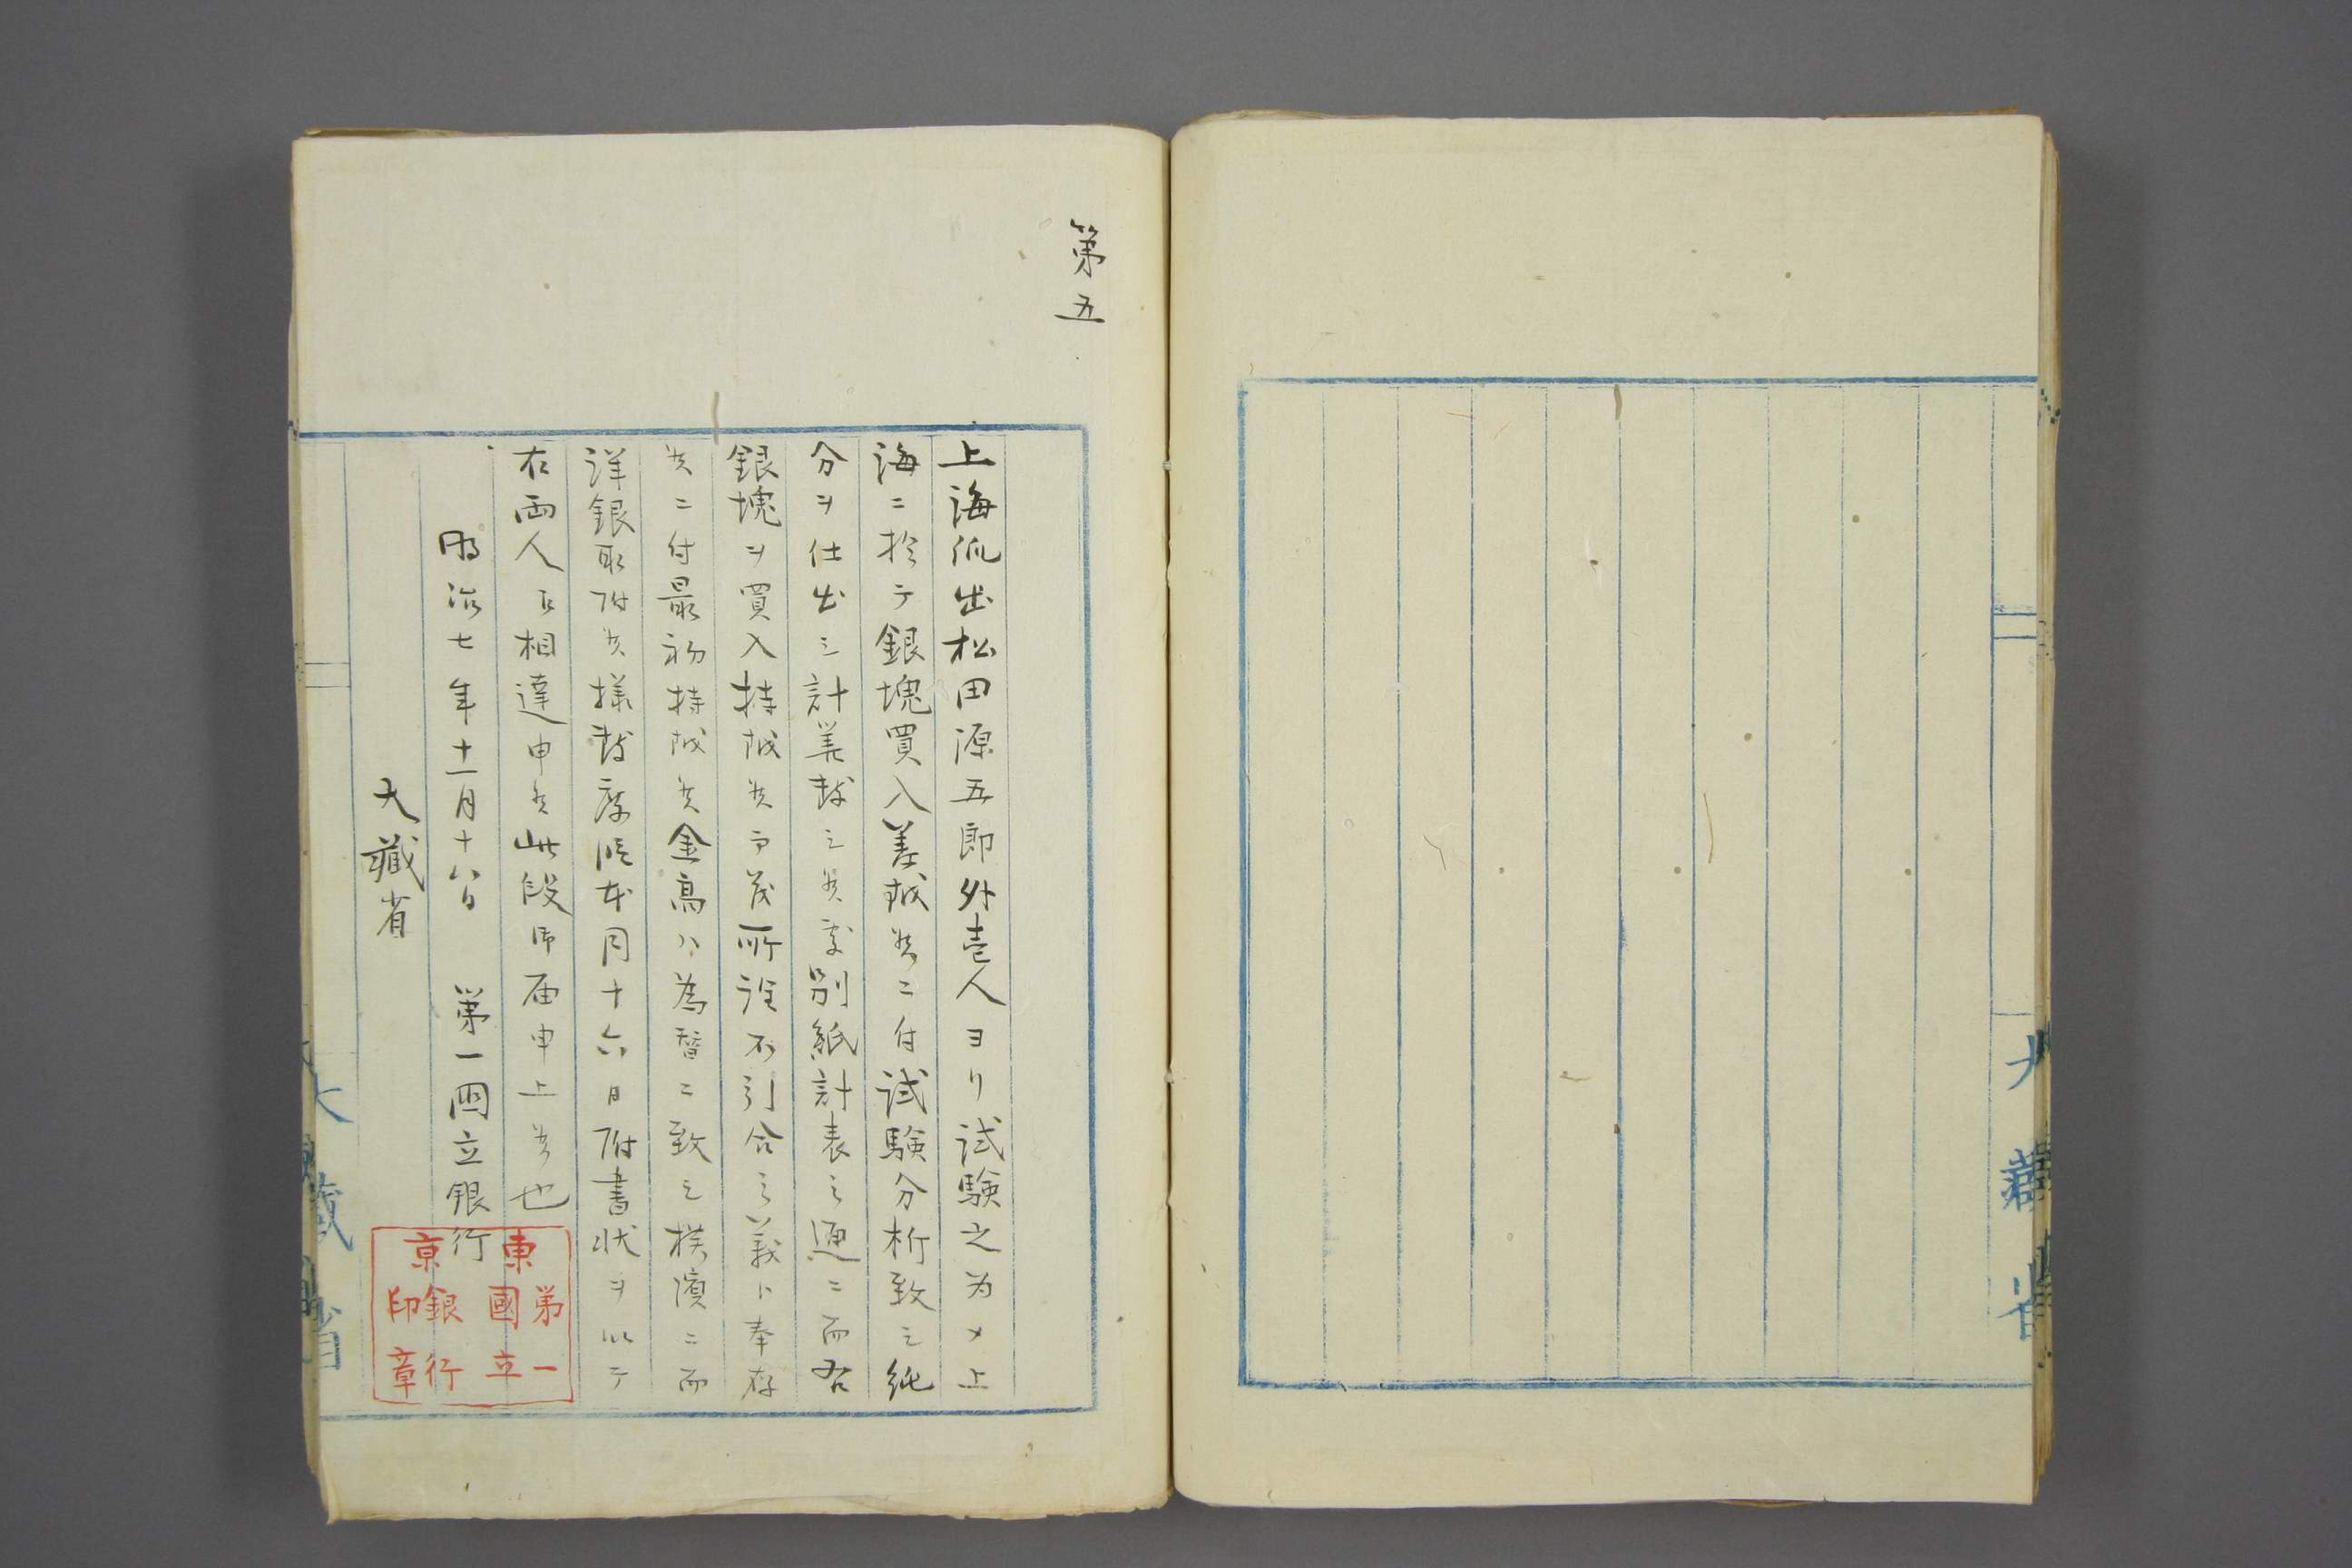 第五
上海派出松田源五郎外壱人ヨリ試験之為メ上
海ニ於テ銀塊買入差越候ニ付試験分析致シ純
分ヲ仕出シ計算致シ候処別紙計表之通ニ而
銀塊ヲ買入持越候而茂所詮不引合之義ト奉存
候ニ付最初持越候金高ハ為替ニ致シ横濱ニ而
洋銀取附候様致度段本月十六日附書状ヲ以テ
右両人江相達申候此段御届申上候也
明治七年十一月十八日 第一國立銀行
大藏省
東京
第一國立
銀行印章
大藏省
大藏省